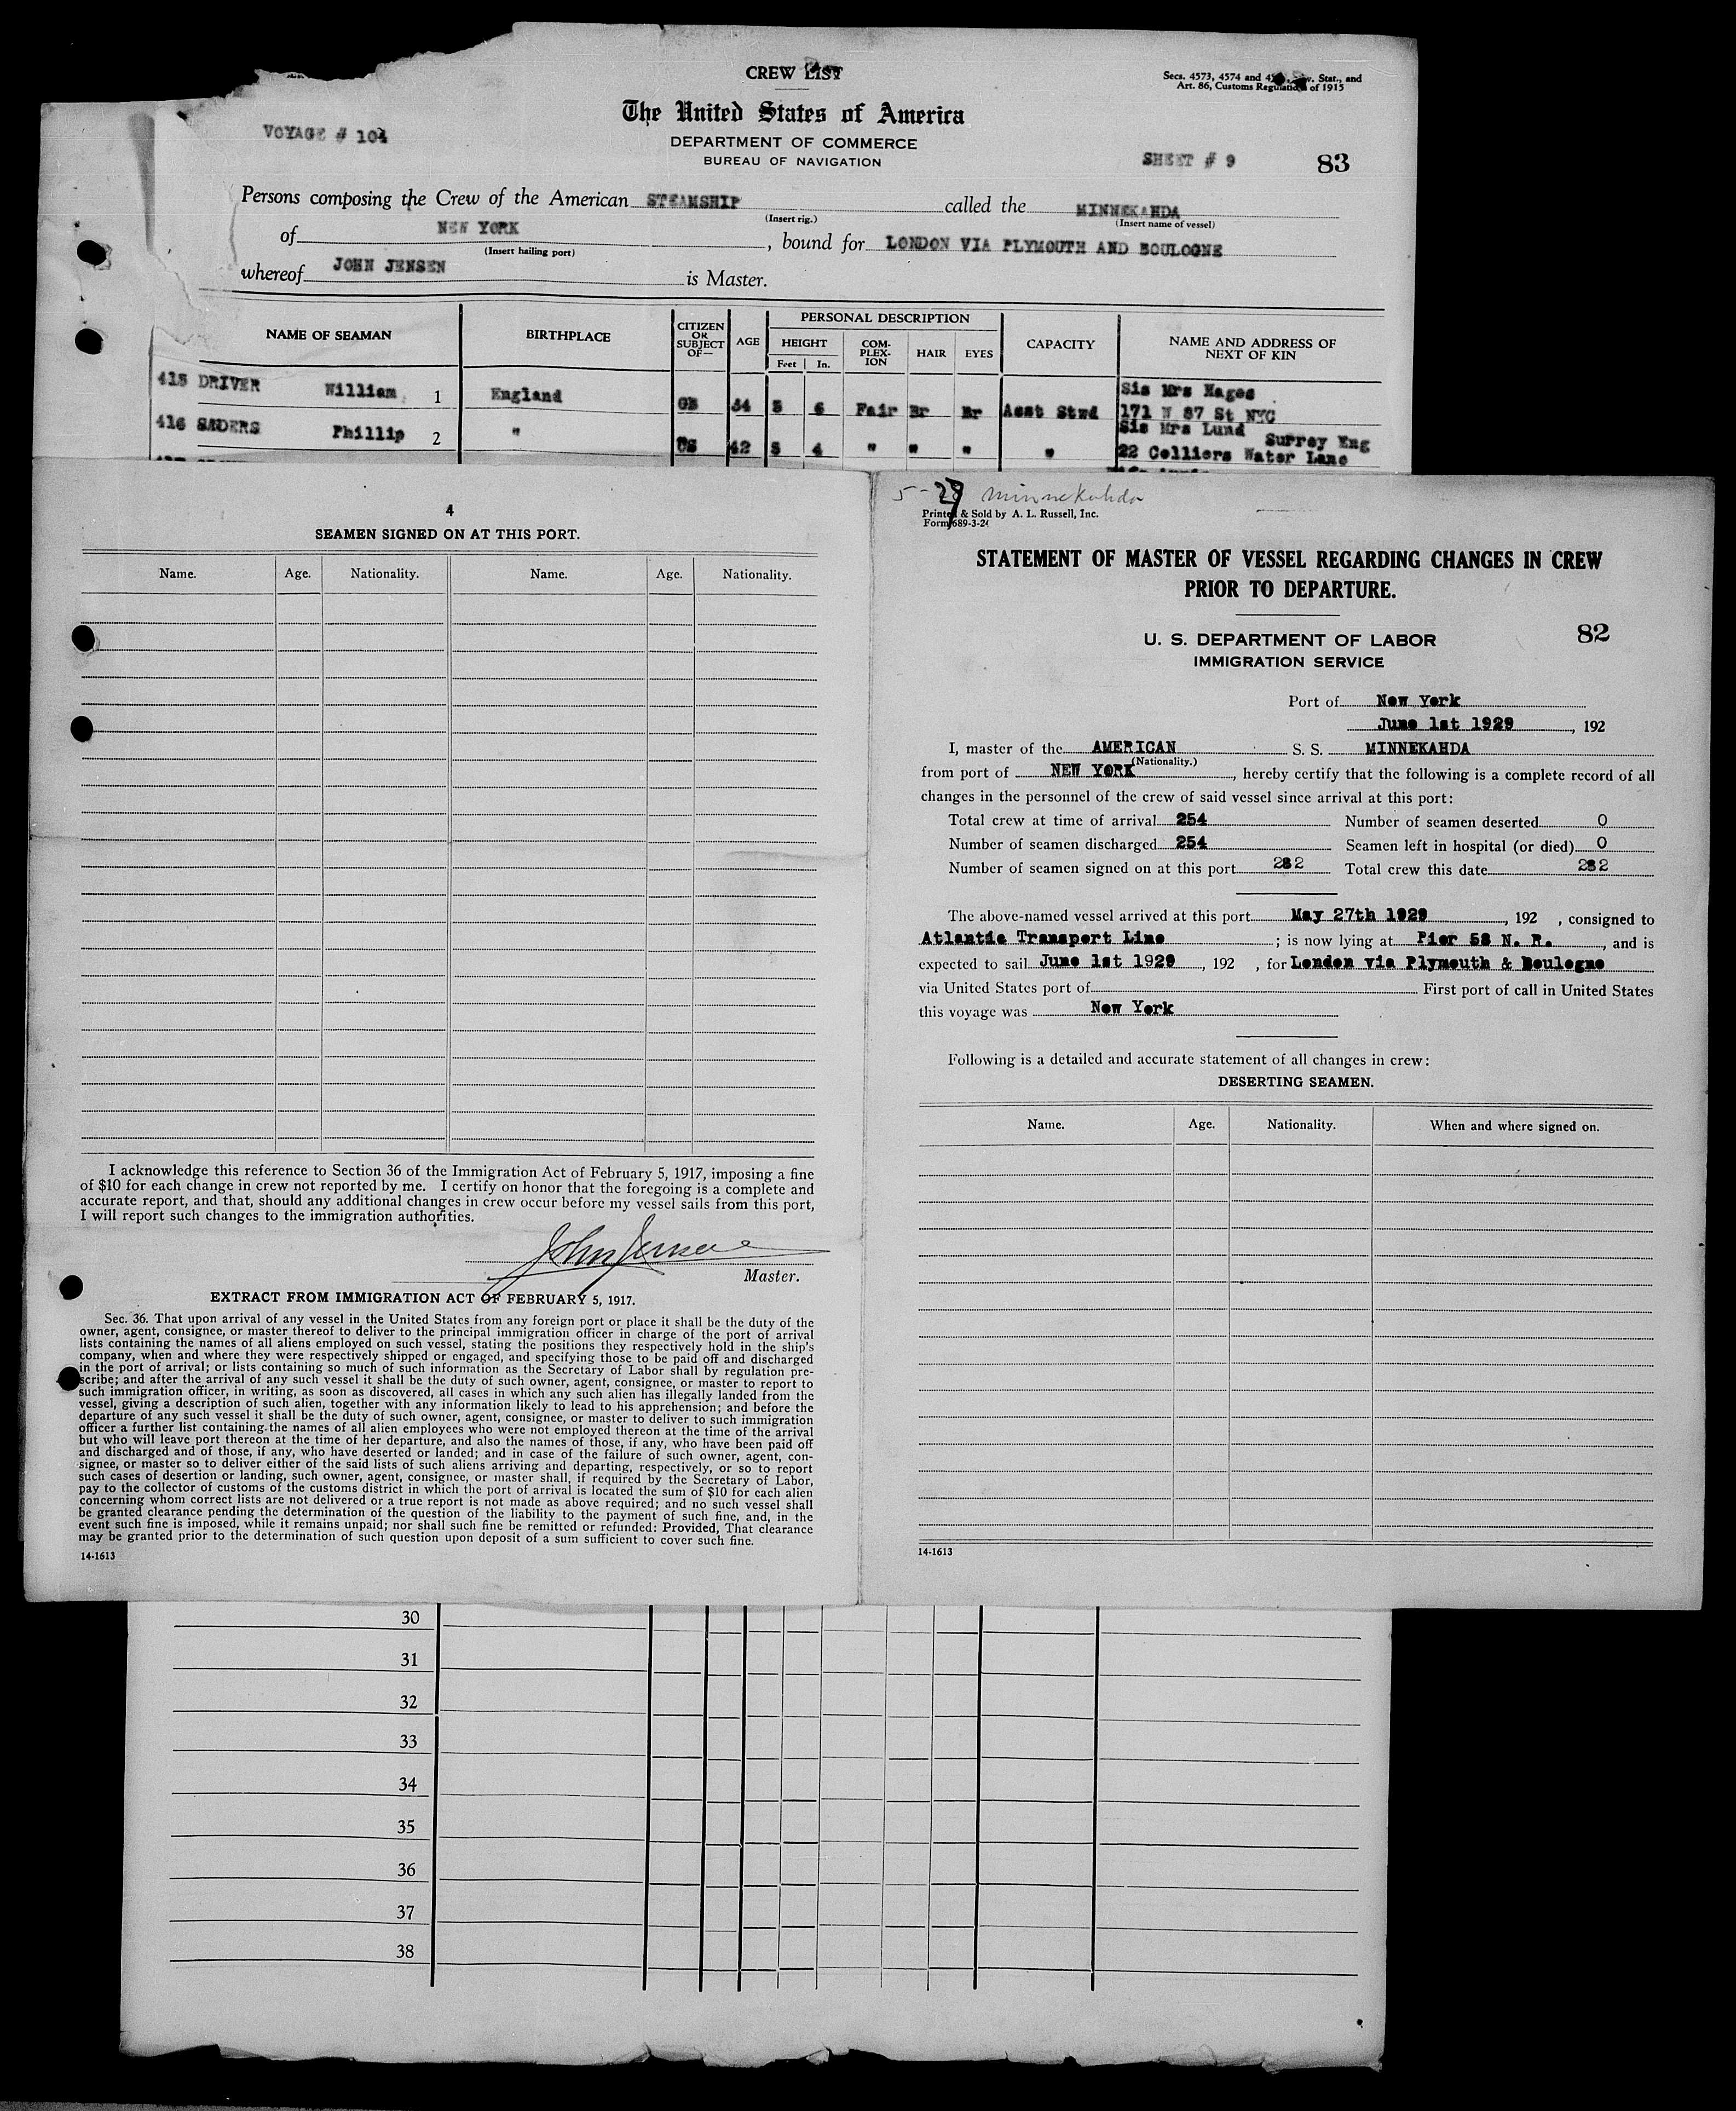 CREW LIST
Secs. 4573, 4574 and Stat., and
Art. 86, Customs Regulations of 1915
The United States of America
VOYAGE # 104
DEPARTMENT OF COMMERCE
BUREAU OF NAVIGATION
SHEET # 9
83
Persons composing the Crew of the American STEAMSHIP called the MINNEKAHDA
(Insert rig.) (Insert name of vessel)
of NEW YORK, bound for LONDON VIA PLYMOUTH AND BOULOGNE
(Insert hailing port)
whereof JOHN JENSEN is Master.
NAME OF SEAMAN BIRTHPLACE CITIZEN OR SUBJECT OF— AGE PERSONAL DESCRIPTION CAPACITY NAME AND ADDRESS OF NEXT OF KIN
HEIGHT COM-PLEX-ION HAIR EYES
Feet In.
Sis Mrs Hages
415 DRIVER William 1 England GB 34 5 6 Fair Br Br Asst Stwd 171 W 87 St NYC
Sis Mrs Lund Surrey Eng
416 SADERS Phillip 2 " US 42 5 4 " " " " 22 Colliers Water Lane
4
SEAMEN SIGNED ON AT THIS PORT.
Name. Age. Nationality. Name. Age. Nationality.
I acknowledge this reference to Section 36 of the Immigration Act of February 5, 1917, imposing a fine
of $10 for each change in crew not reported by me. I certify on honor that the foregoing is a complete and
accurate report, and that, should any additional changes in crew occur before my vessel sails from this port,
I will report such changes to the immigration authorities.
John Jensen
Master.
EXTRACT FROM IMMIGRATION ACT OF FEBRUARY 5, 1917.
Sec. 36. That upon arrival of any vessel in the United States from any foreign port or place it shall be the duty of the
owner, agent, consignee, or master thereof to deliver to the principal immigration officer in charge of the port of arrival
lists containing the names of all aliens employed on such vessel, stating the positions they respectively hold in the ship's
company, when and where they were respectively shipped or engaged, and specifying those to be paid off and discharged
in the port of arrival; or lists containing so much of such information as the Secretary of Labor shall by regulation pre-
scribe; and after the arrival of any such vessel it shall be the duty of such owner, agent, consignee, or master to report to
such immigration officer, in writing, as soon as discovered, all cases in which any such alien has illegally landed from the
vessel, giving a description of such alien, together with any information likely to lead to his apprehension; and before the
departure of any such vessel it shall be the duty of such owner, agent, consignee, or master to deliver to such immigration
officer a further list containing the names of all alien employees who were not employed thereon at the time of the arrival
but who will leave port thereon at the time of her departure, and also the names of those, if any, who have been paid off
and discharged and of those, if any, who have deserted or landed; and in case of the failure of such owner, agent, con-
signee, or master so to deliver either of the said lists of such aliens arriving and departing, respectively, or so to report
such cases of desertion or landing, such owner, agent, consignee, or master shall, if required by the Secretary of Labor,
pay to the collector of customs of the customs district in which the port of arrival is located the sum of $10 for each alien
concerning whom correct lists are not delivered or a true report is not made as above required; and no such vessel shall
be granted clearance pending the determination of the question of the liability to the payment of such fine, and, in the
event such fine is imposed, while it remains unpaid; nor shall such fine be remitted or refunded: Provided, That clearance
may be granted prior to the determination of such question upon deposit of a sum sufficient to cover such fine.
14-1613
5-27 Minnekahda
Printed & Sold by A. L. Russell, Inc.
Form 689-3-24
STATEMENT OF MASTER OF VESSEL REGARDING CHANGES IN CREW
PRIOR TO DEPARTURE.
82
U. S. DEPARTMENT OF LABOR
IMMIGRATION SERVICE
Port of New York
June 1st 1929, 192
I, master of the AMERICAN S. S. MINNEKAHDA
(Nationality.)
from port of NEW YORK, hereby certify that the following is a complete record of all
changes in the personnel of the crew of said vessel since arrival at this port:
Total crew at time of arrival 254 Number of seamen deserted 0
Number of seamen discharged 254 Seamen left in hospital (or died) 0
Number of seamen signed on at this port 282 Total crew this date 282
The above-named vessel arrived at this port May 27th 1929, 192 , consigned to
Atlantic Transport Line; is now lying at Pier 58 N. R., and is
expected to sail June 1st 1929, 192 , for London via Plymouth & Boulogne
via United States port of First port of call in United States
this voyage was New York
Following is a detailed and accurate statement of all changes in crew:
DESERTING SEAMEN.
Name. Age. Nationality. When and where signed on.
14-1613
30
31
32
33
34
35
36
37
38